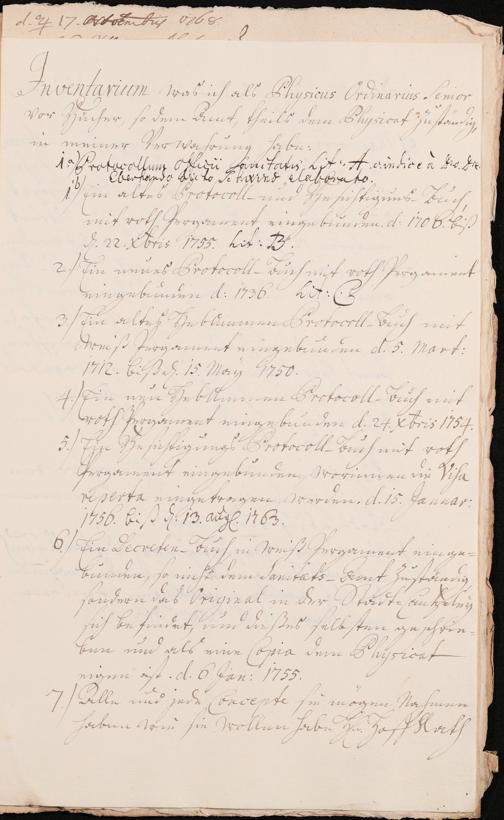 d. 17. 1768
Inventarium was ich als Physicus Ordinarius Senior
vor Bücher, so dem Amt, theils dem Physicat zuständig,
in meiner Verwahrung habe:
1a) Protocollum Officii Sanitatis Lit: A c. indice à
Eberhardo elaborato.
1b) Ein altes Protocoll- und Besichtigungs-Buch,
mit roth Pergament eingebunden. d. 1706. biß
d. 22. Xbris 1755. Lit: B.
2.) Ein neues Protocoll-Buch mit roth Pergament
eingebunden d: 1736. Lit: C
3.) Ein altes Hebammen Protocoll-Buch mit
weiß Pergament eingebunden d. 5. Mart:
1712. biß d. 15. May 1750.
4.) Ein neu Hebammen Protocoll-Buch mit
roth Pergament eingebunden d. 24. Xbris 1754.
5.) Ein Besichtigungs Protocoll-Buch mit roth
Pergament eingebunden, worinnen die Visa
reperta eingetragen werden. d. 15. Januar:
1756. biß d. 13. aug. 1763.
6.) Ein Decreten-Buch, in weiß Pergament einge-
bunden, so nicht dem Sanitäts-Amt zuständig
sondern das Original in der Stadt
sich befindet, und dießes selbsten geschrie-
ben und als eine Copia dem Physicat
eigen ist. d. 6. Jan: 1755.
7.) Alle und jede Concepte sie mögen Nahmen
haben wie sie wollen habe Hr. Hoff Rath